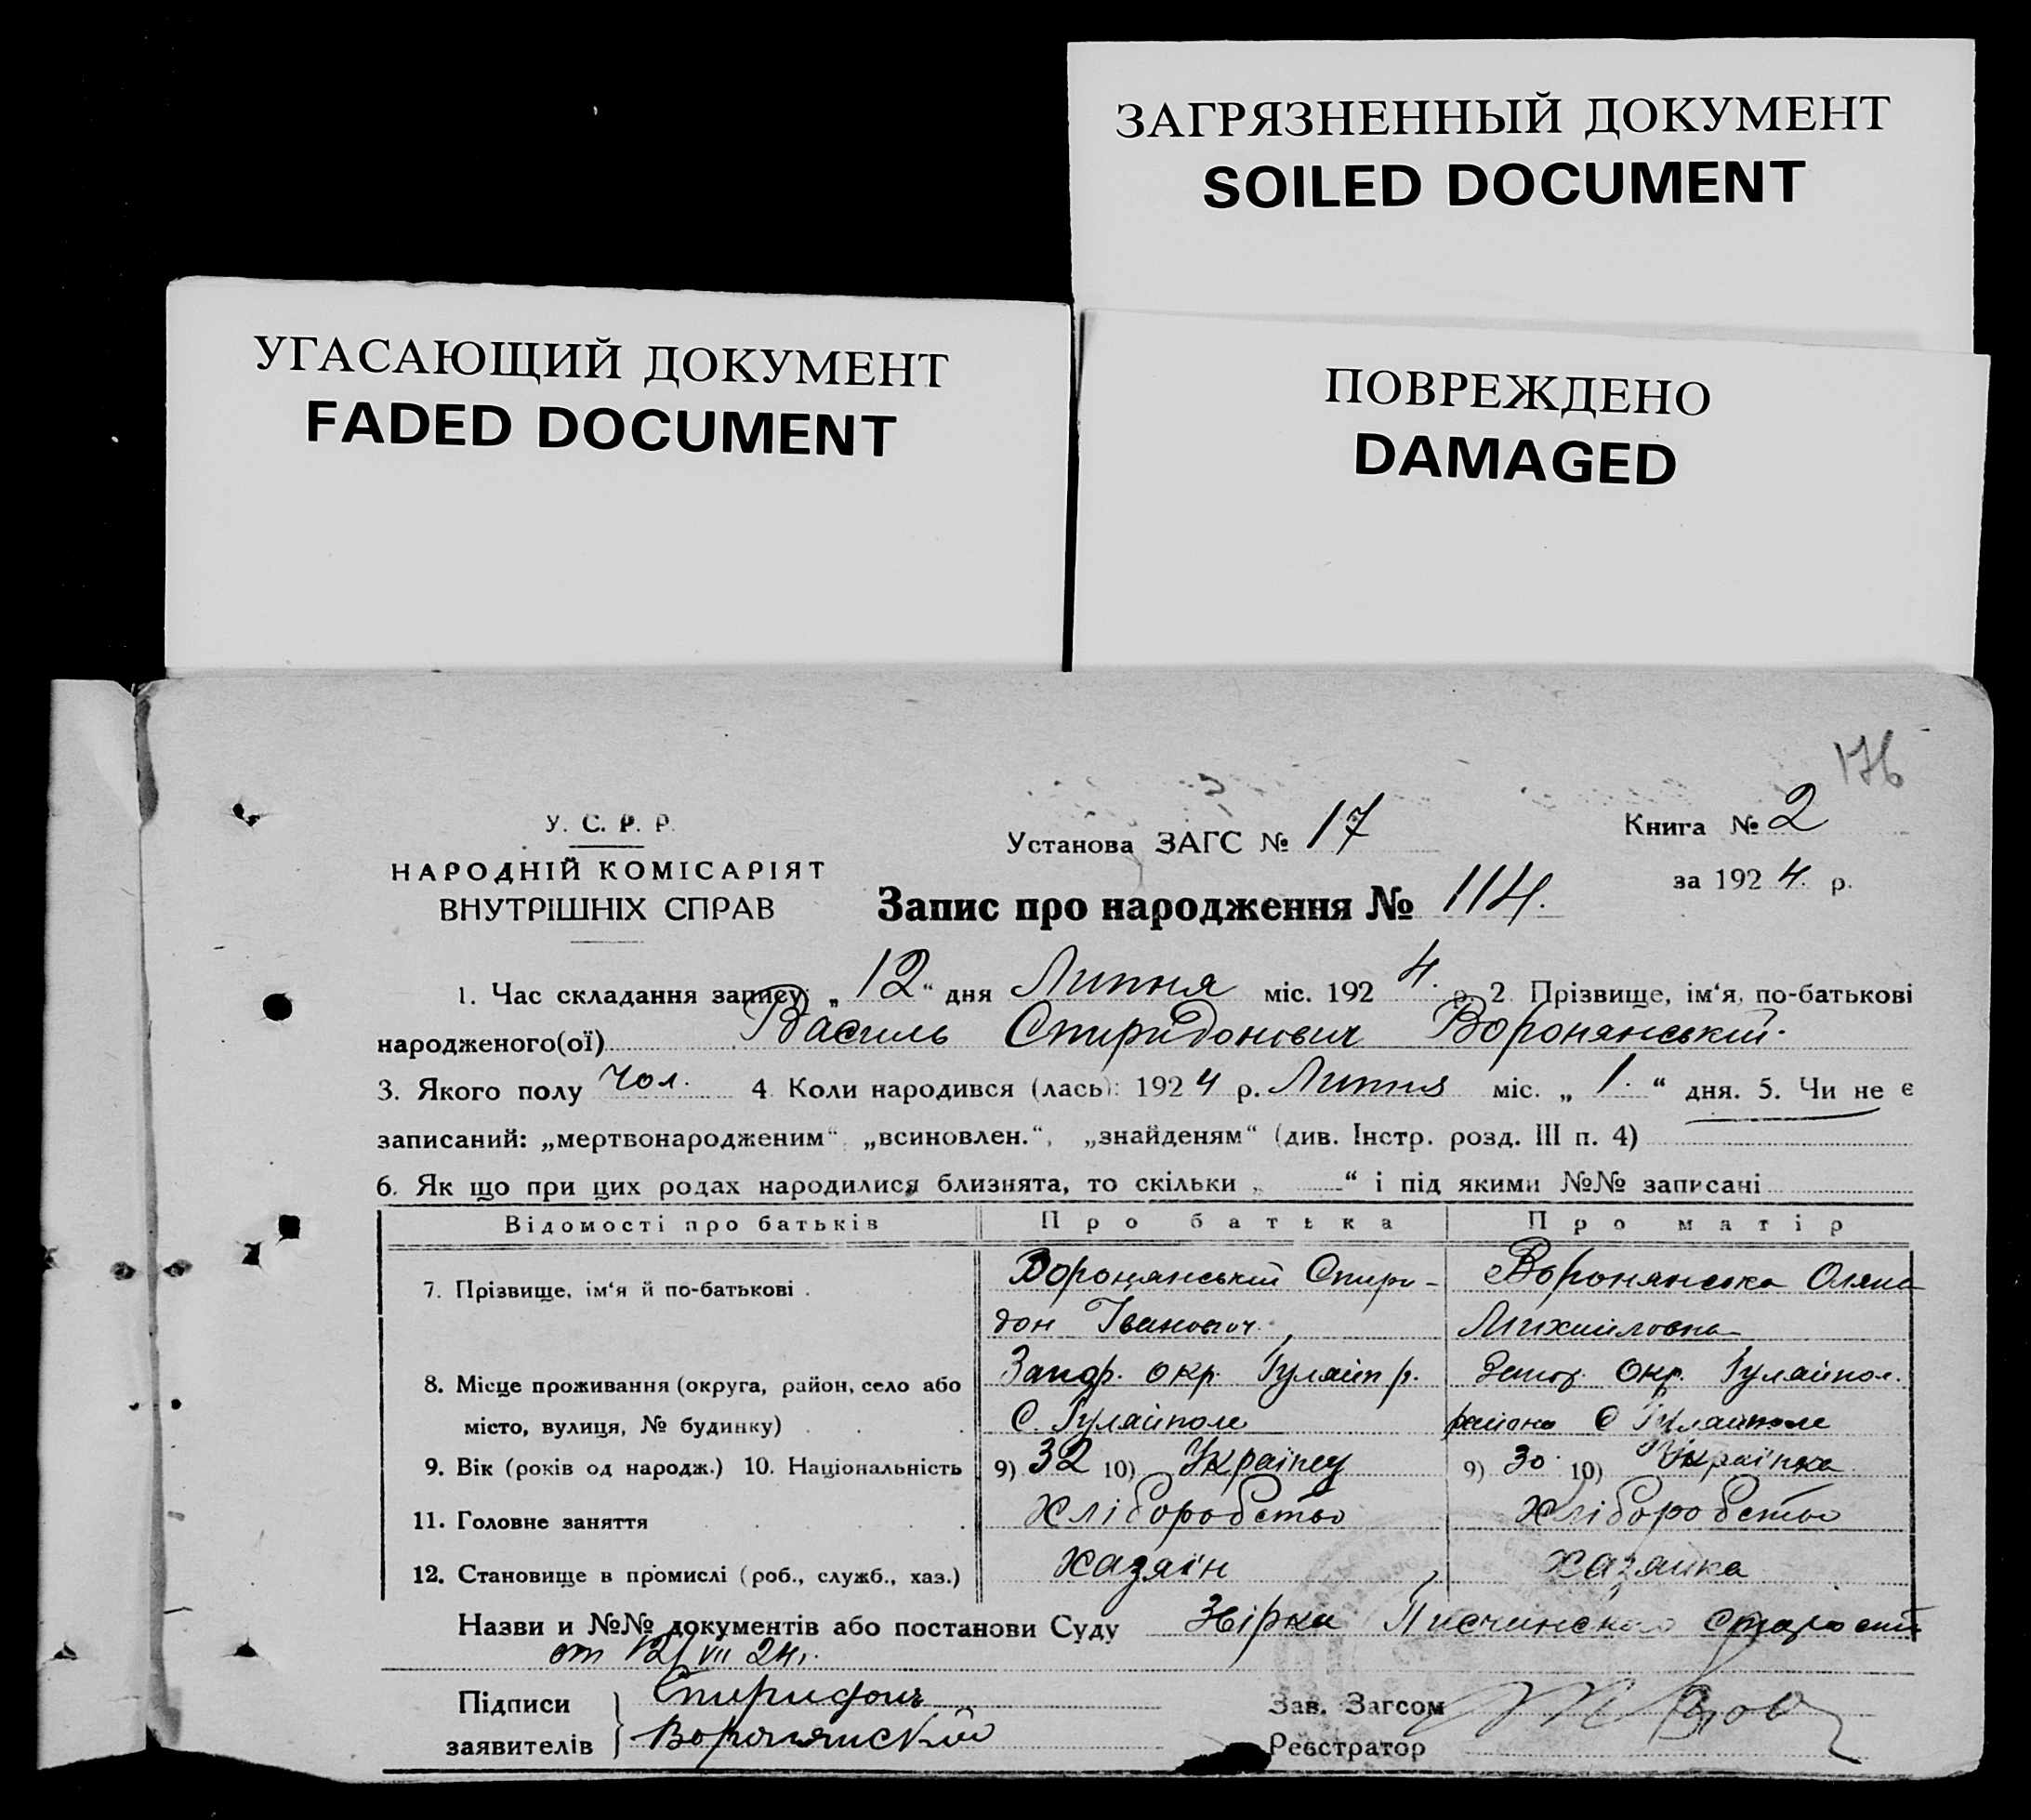 ЗАГРЯЗНЕННЫЙ ДОКУМЕНТ
SOILED DOCUMENT
УГАСАЮЩИЙ ДОКУМЕНТ
FADED DOCUMENT
ПОВРЕЖДЕНО
DAMAGED
176
У. С. Р. Р.
НАРОДНІЙ КОМІСАРІЯТ
ВНУТРІШНІХ СПРАВ
Установа ЗАГС № 17
Книга № 2
за 1924 р.
Запис про народження № 114.
1. Час складання запису: „12“ дня Липня міс. 1924. р. 2 Прізвище, ім‘я, по-батькові
народженого(ої) Василь Спиридонович Воронянський.
3. Якого полу Чол. 4. Коли народився (лась): 1924 р. Липня міс. „1.“ дня. 5. Чи не є
записаний: „мертвонародженим“, „всиновлен.“, „знайденям“ (див. Інстр. розд. III п. 4)
6. Як що при цих родах народилися близнята, то скільки „ “ і під якими №№ записані
Відомості про батьків Про батька Про матір
7. Прізвище, ім‘я й по-батькові . Воронянський Спири- Воронянська Оляна
дон Іванович. Михайловна
8. Місце проживання (округа, район, село або Запор. окр. Гуляйп р. Запор. Окр. Гуляйпол.
місто, вулиця, № будинку) С. Гуляйполе района С Гуляйполе
9. Вік (років од народж.) 10. Національність 9) 32 10) Українец 9) 30. 10) Українка
11. Головне заняття Хліборобство Хліборобство
12. Становище в промислі (роб., служб., хаз.) Хазяїн Хазяйка
Назви и №№ документів або постанови Суду
от 12/VII 24 г.
Підписи Спиридонъ Зав. Загсом
заявителів Воронянский Реєстратор